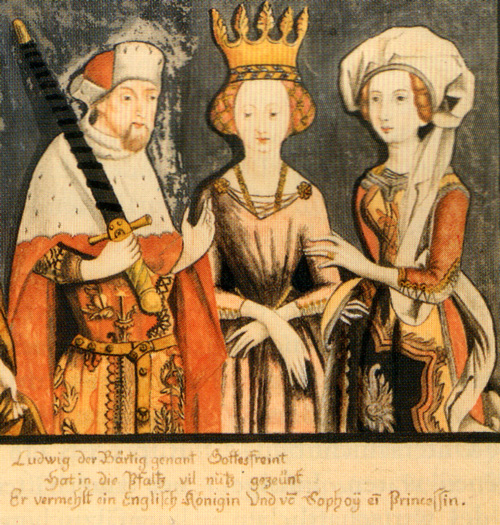 Ludwig der Bärtig genant Gottesfreint
Hat in die Pfaltz vil nütz gezeünt
Er vermehlt ein Englisch Königin Vnd vō Sophoÿ ei Princessin.